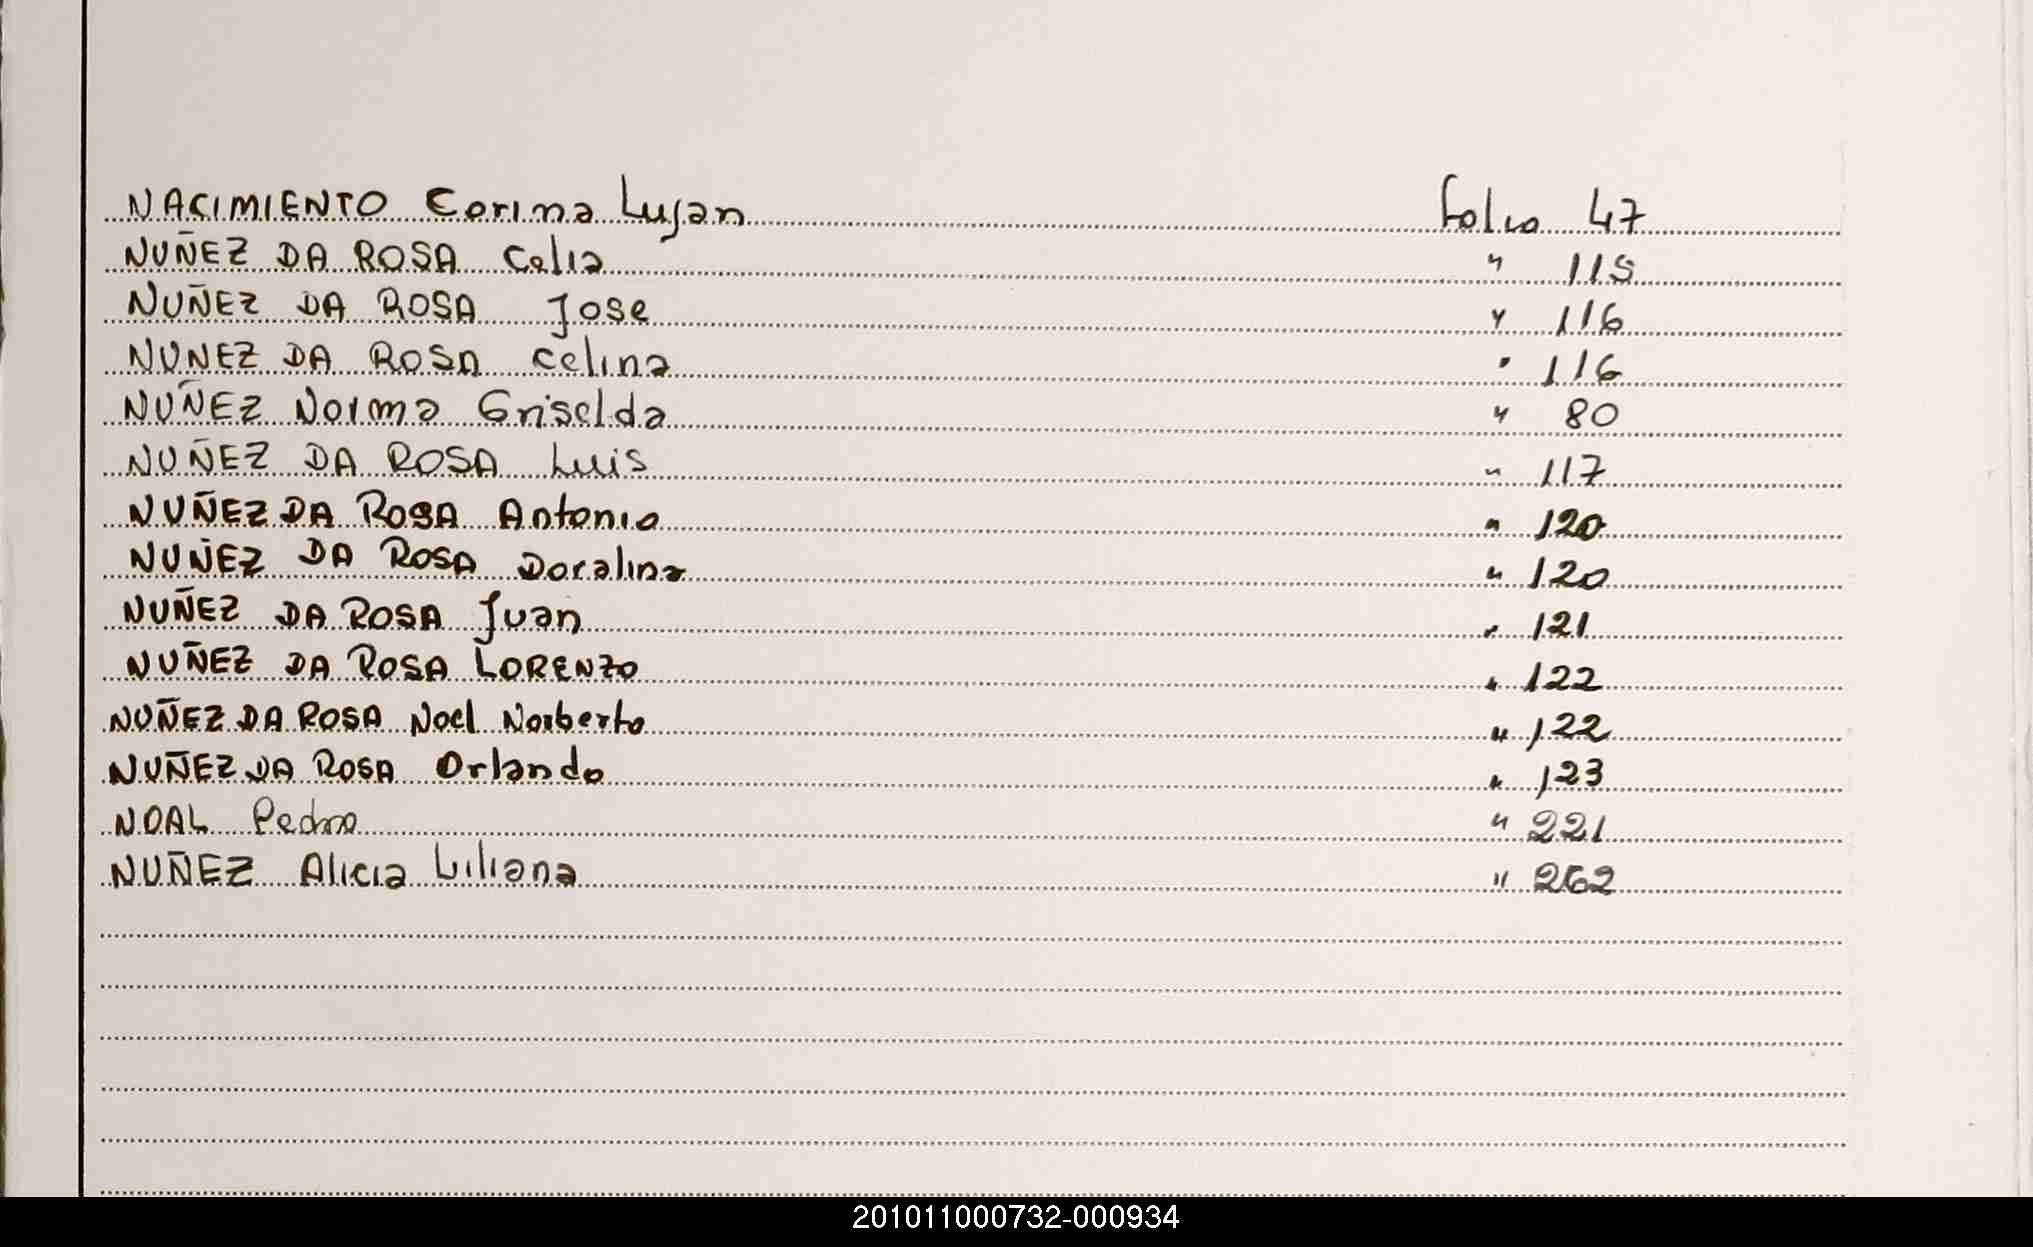 NACIMIENTO Corina Lujan Folio 47
NUÑEZ DA ROSA Celia " 115
NUÑEZ DA ROSA Jose " 116
NUNEZ DA ROSA Celina " 116
NUÑEZ Norma Griselda " 80
NUÑEZ DA ROSA Luis " 117
NUÑEZ DA ROSA Antonio " 120
NUÑEZ DA ROSA Doralina " 120
NUÑEZ DA ROSA Juan " 121
NUÑEZ DA ROSA LORENZO " 122
NUÑEZ DA ROSA Noel Norberto " 122
NUÑEZ DA ROSA Orlando " 123
NOAL Pedro " 221
NUÑEZ Alicia Liliana " 262
201011000732-000934